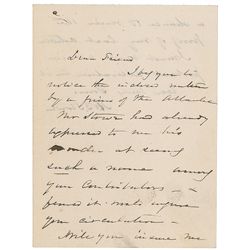 Dear Friend
I beg you to
notice the inclosed notice
by a friend of the Atlantic
Mr Stowe had already
expressed to me his
wonder at seeing
such a name among
your Contributors –
feared it might injure
your circulation –
Will you insure me